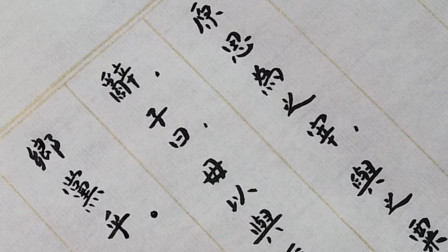 原思為之宰，與之粟
辭，子曰，毋以與
鄉黨乎。